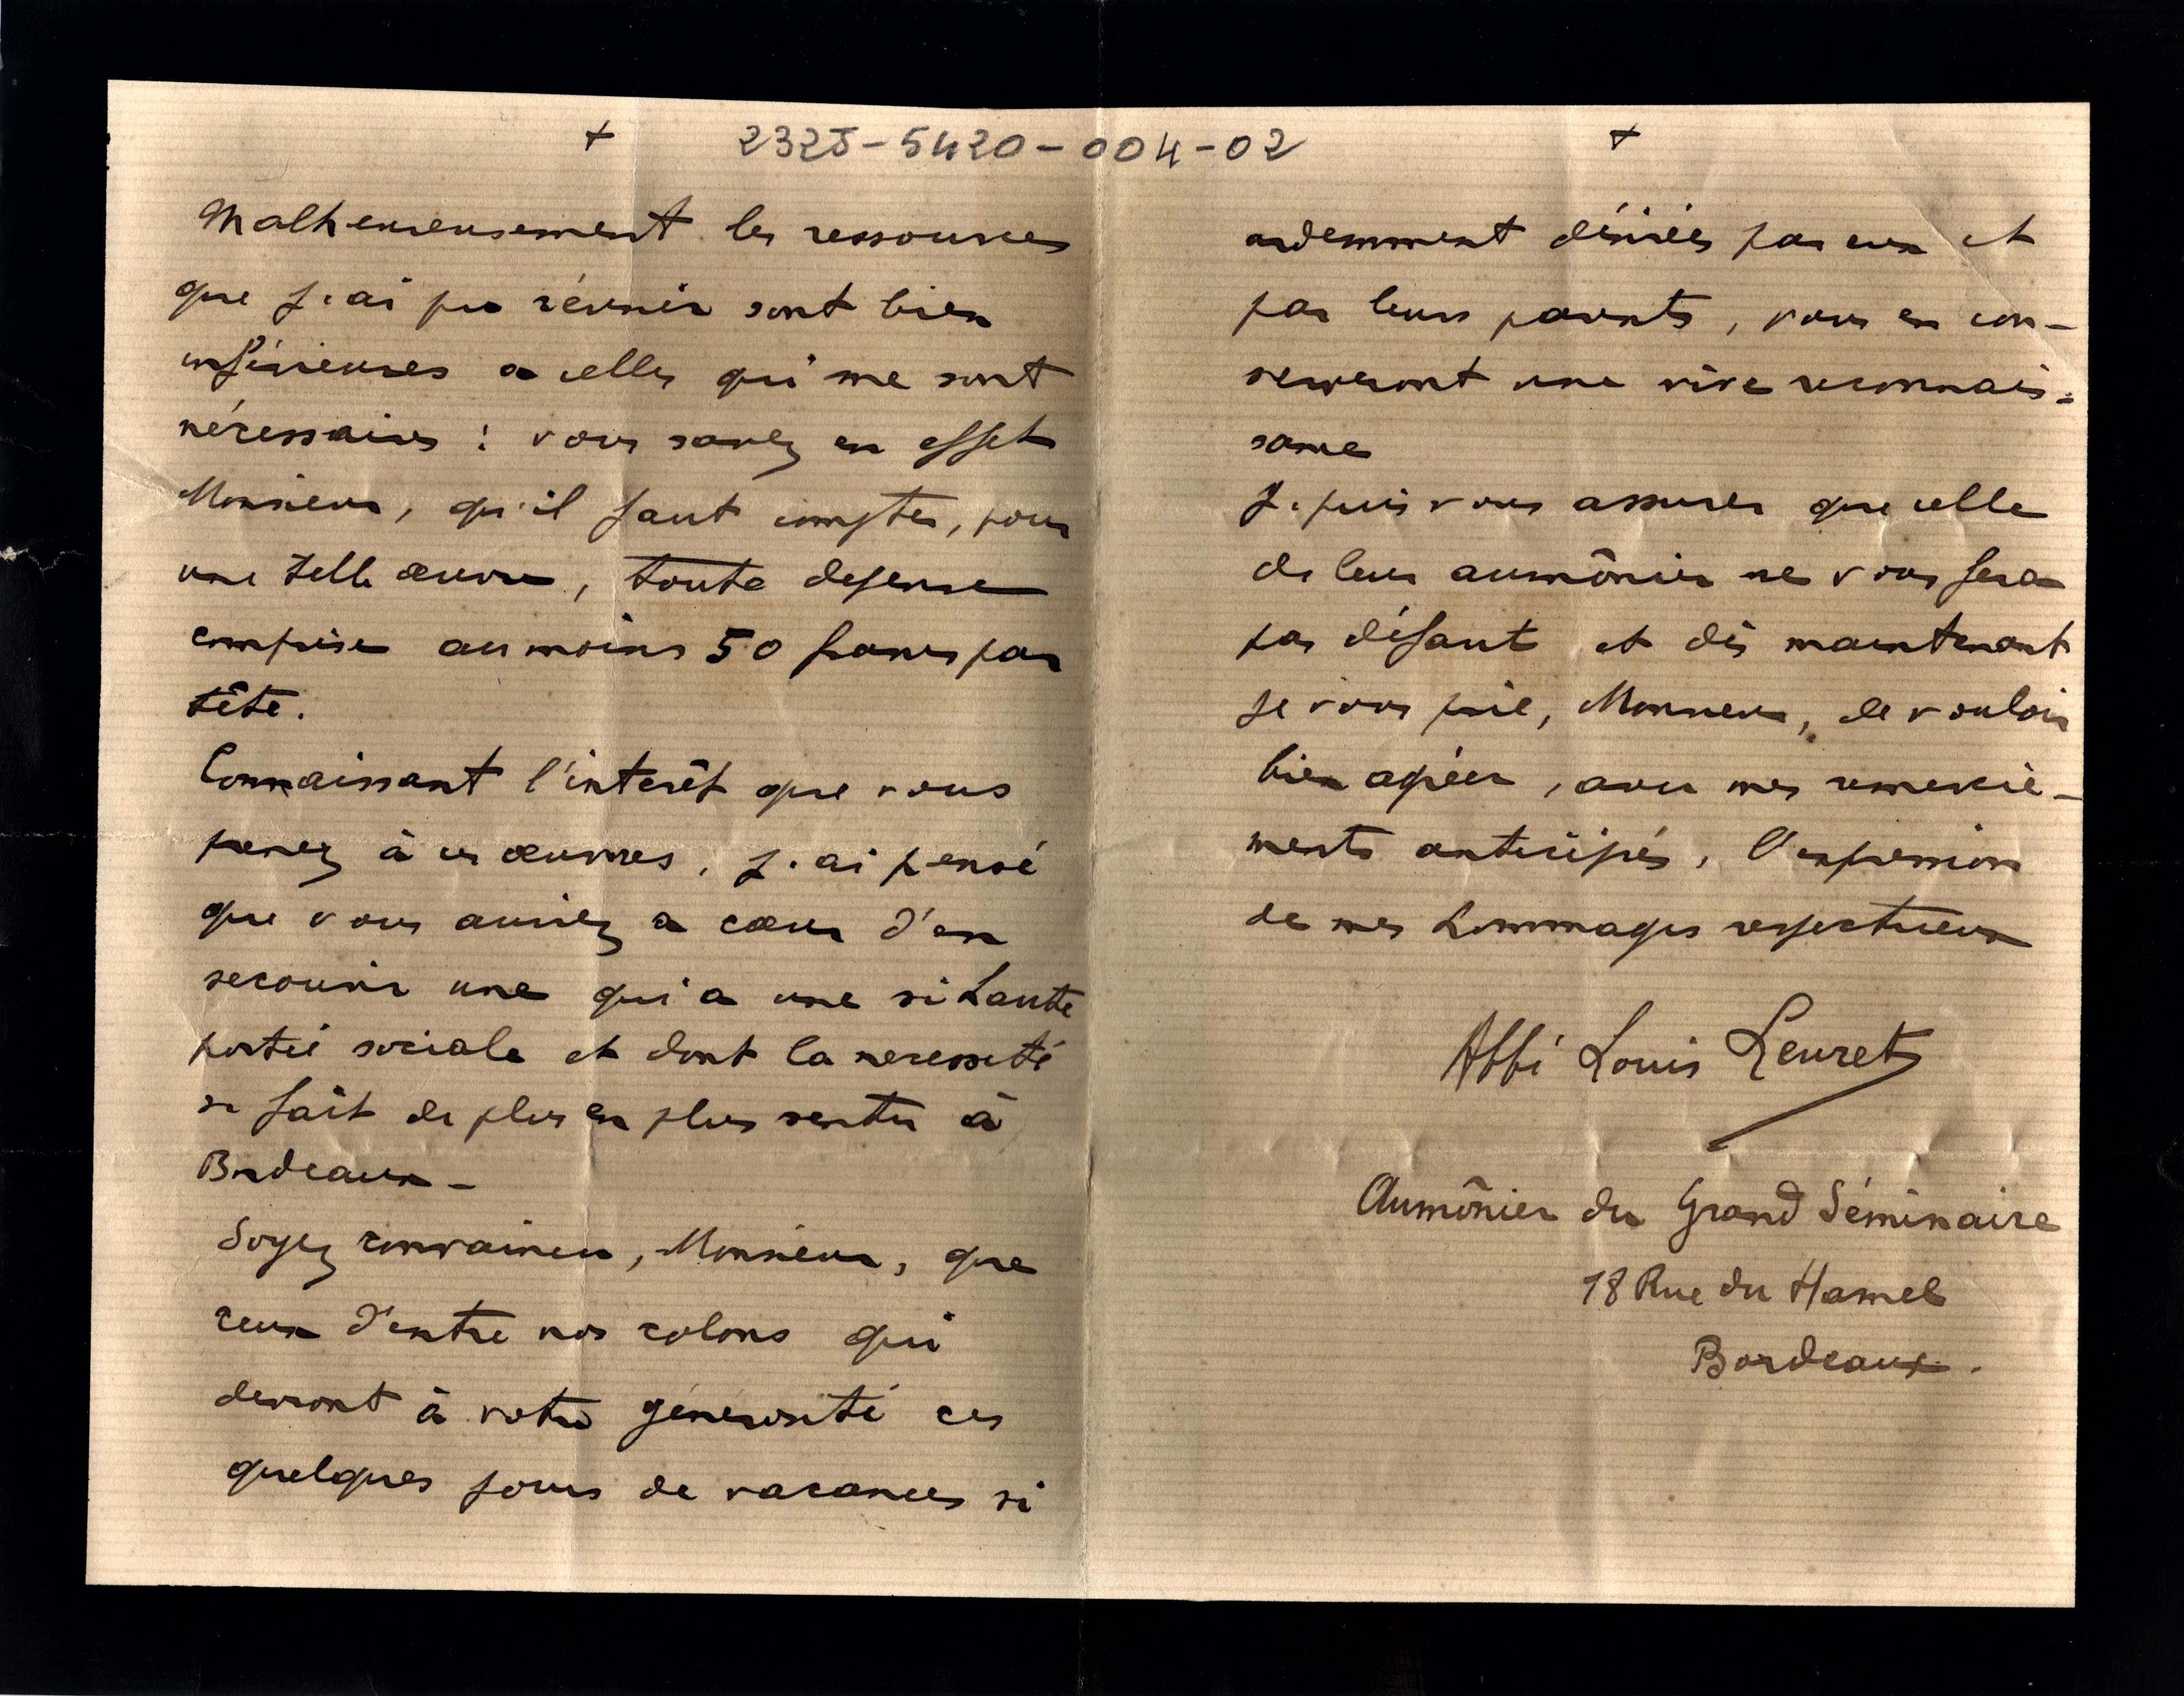 2325-5420-004-02
+
Malheureusement les ressources
que j'ai pu réunir sont bien
inférieures a celles qui me sont
nécessaires : vous savez en effet
Monsieur, qu'il faut compter, pour
une telle œuvre, toute depense
comprise au moins 50 francs par
tête.
Connaissant l'interêt que vous
prenez à ces œuvres, j'ai pensé
que vous auriez a cœur d'en
secourir une qui a une si haute
portée sociale et dont la necessité
se fait de plus en plus sentir à
Bordeaux -
Soyez convaincu, Monsieur, que
ceux d'entre nos colons qui
devront à votre générosité ces
quelques jours de vacances si
+
ardemment désirés par eux et
par leurs parents, vous en con-
serveront une vive reconnais-
sance
Je puis vous assurer que celle
de leur aumônier ne vous fera
pas défaut et dès maintenant
je vous prie, Monsieur, de vouloir
bien agréer, avec mes remercie-
ments anticipés, l'expression
de mes hommages respectueux
Abbé Louis Leuret
Aumônier du Grand Séminaire
18 Rue du Hamel
Bordeaux.